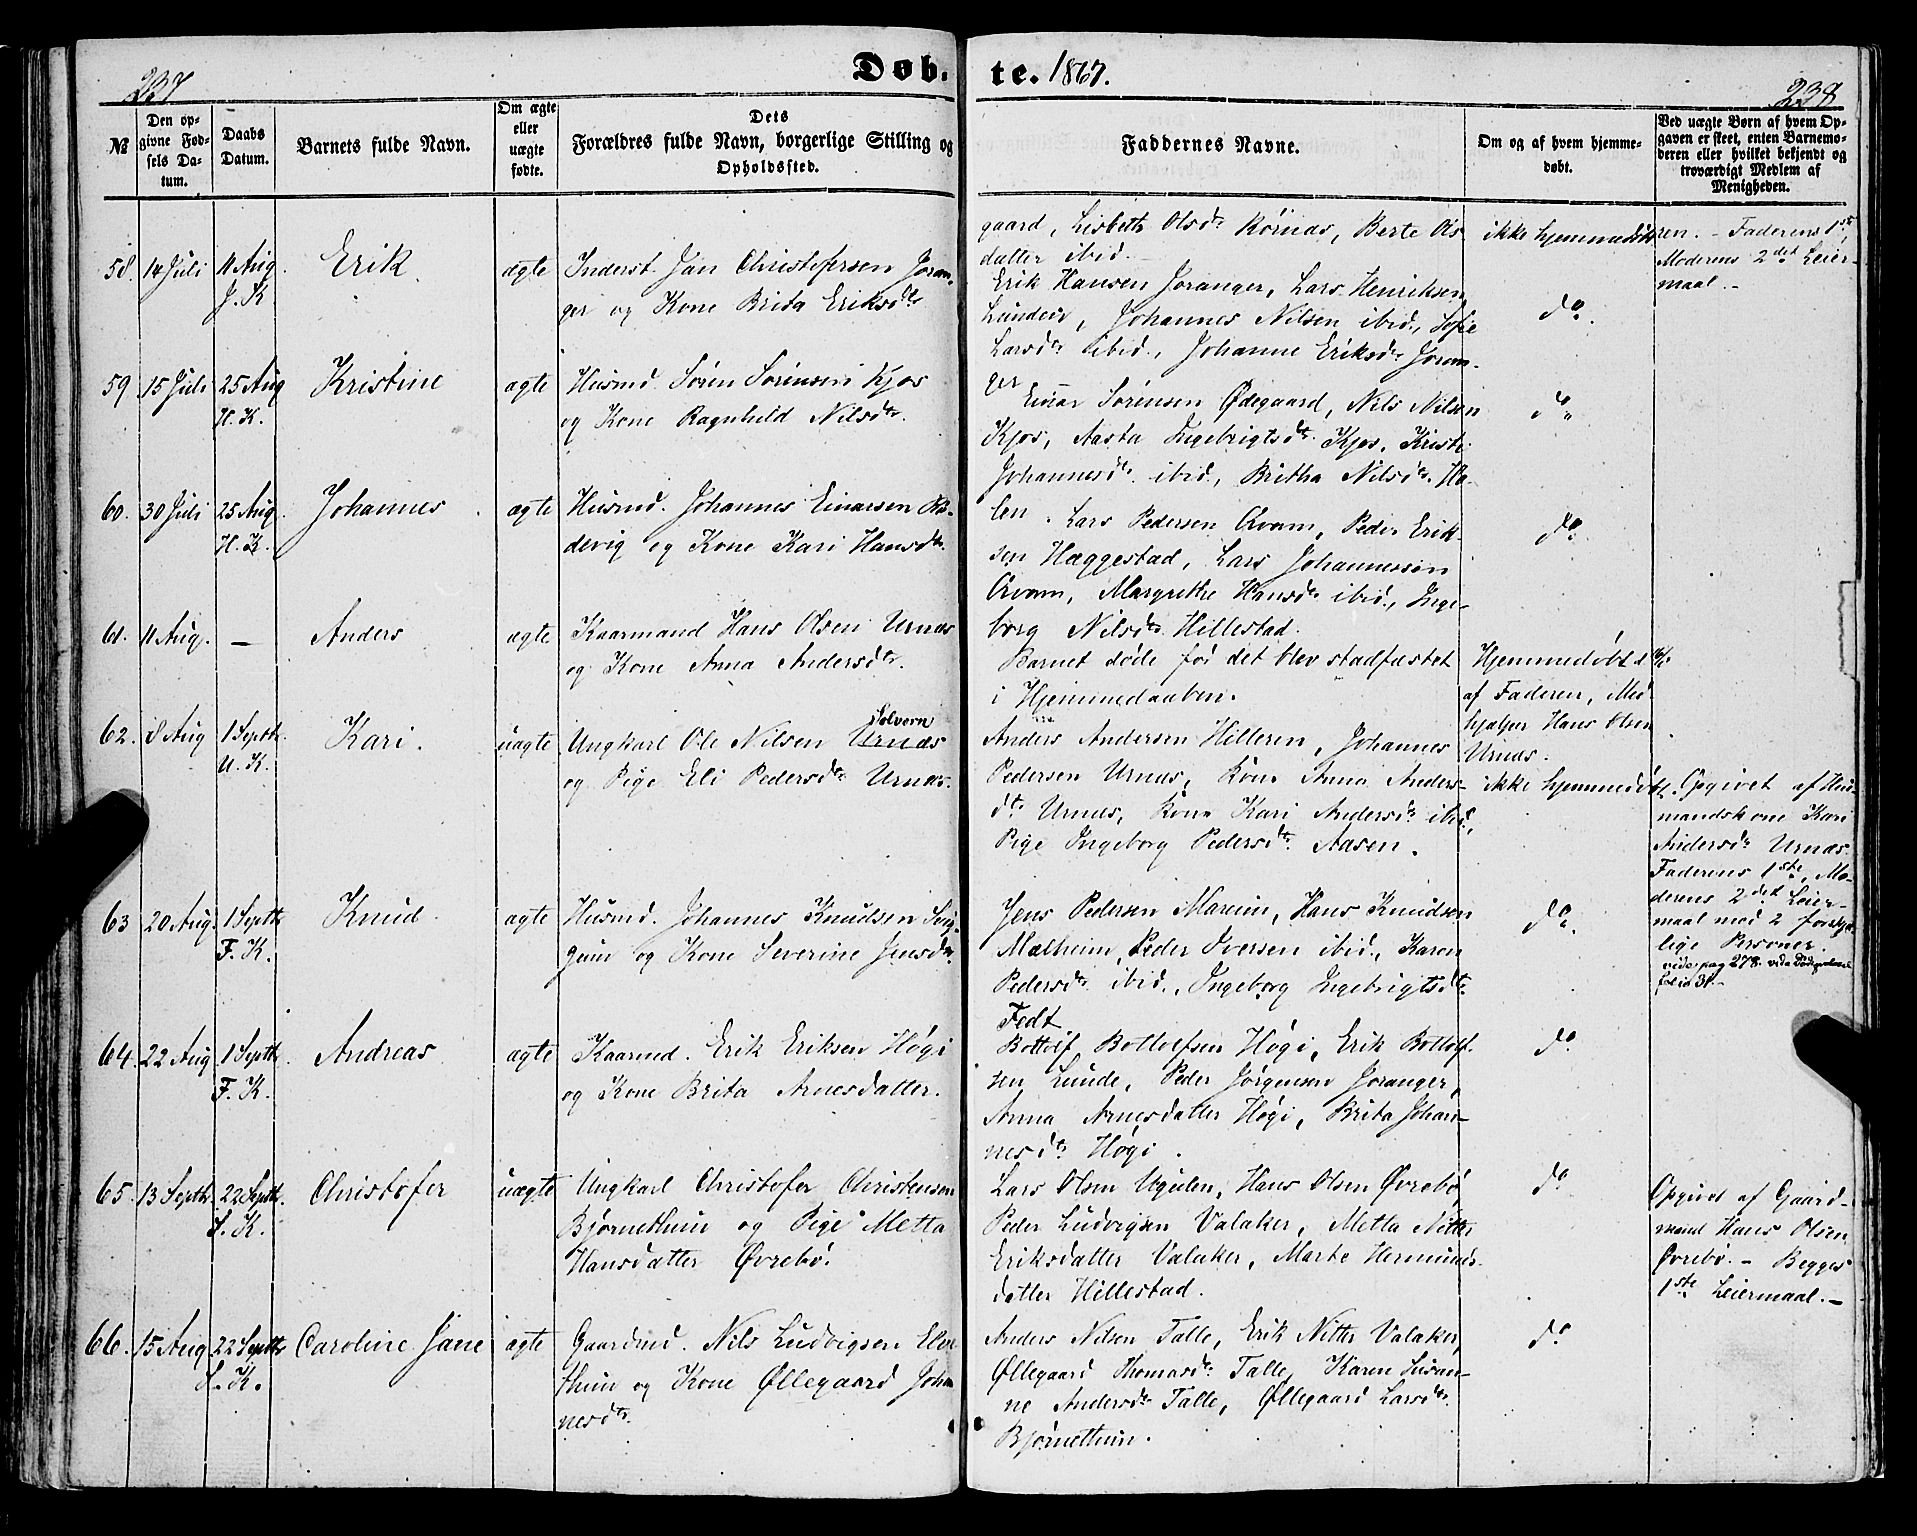 237
Døb.
te. 1867.
238
№
Den op-
givne Fød-
sels Da-
tum.
Daabs
Datum.
Barnets fulde Navn.
Om ægte
eller
uægte
fødte.
Dets
Forældres fulde Navn, borgerlige Stilling og
Opholdssted.
Faddernes Navne.
Om og af hvem hjemme-
døbt.
Ved uægte Børn af hvem Op-
gaven er skeet, enten Barnemo-
deren eller hvilket bekjendt og
troværdigt Medlem af
Menigheden.
gaard, Lisbeth Olsdtr Rørnæs, Berte Ols-
datter ibid.
ikke hjemmedøbt
ren. – Faderens 1ste
Moderens 2det Leier-
maal. –
58. 14 Juli 11 Aug. Erik. ægte Inderst. Jan Christofersen Joran-
J. K ger og Kone Brita Eriksdtr
Erik Hansen Joranger, Lars Henriksen
Lundeiv, Johannes Nilsen ibid., Sofie
Larsdtr ibid., Johanne Eriksdtr Joran-
ger
do.
59. 15 Juli 25 Aug Kristine ægte Husmd. Søren Sørensen Kjos
H. K. og Kone Ragnhild Nilsdtr.
Einar Sørensen Ødegaard, Nils Nilsen
Kjos, Aasta Ingebrigtsdtr. Kjos, Kristi
Johannesdtr ibid., Britha Nilsdtr. Ha-
len.
do.
60. 30 Juli 25 Aug. Johannes. ægte Husmd. Johannes Einarsen
H. K. devig og Kone Kari Hansdtr.
Lars Pedersen Qvam, Peder Erik-
sen Hæggestad, Lars Johannessen
Qvam, Margrethe Hansdtr ibid., Inge-
borg Nilsdtr. Hillestad.
do.
61. 11 Aug. – Anders ægte Kaarmand Hans Olsen Urnæs
og Kone Anna Andersdtr.
Barnet døde før det blev stadfæstet
i Hjemmedaaben.
Hjemmedøbt d
af Faderen, Med-
hjælper Hans Olsen
Urnæs.
62. 8 Aug 1 Septb. Kari. uægte Ungkarl Ole Nilsen Urnæs Solvorn
U. K. og Pige Eli Pedersdtr Urnæs.
Anders Andersen Hilleren, Johannes
Pedersen Urnæs, Kone Anna Anders-
dtr Urnæs, Kone Kari Andersdtr ibid.,
Pige Ingeborg Pedersdtr. Aasen.
ikke hjemmedøbt.
Opgivet af Hus-
mandskone Kari
Andersdtr Urnæs.
Faderens 1ste, Mo-
derens 2det Leier-
maal med 2 forskjæl-
lige Personer.
vide pag 278. vide
folio 31. –
63 20 Aug. 1 Septb. Knud. ægte Husmd. Johannes Knudsen Svig-
F. K. gum og Kone Severine Jensdtr.
Jens Pedersen Marum, Hans Knudsen
Mælheim, Peder Iversen ibid., Karen
Pedersdtr ibid., Ingeborg Ingebrigtsdtr.
Fedt
do.
64. 22 Aug 1 Septb. Andreas ægte Kaarmd. Erik Eriksen Høgi
F. K. og Kone Brita Arnesdatter.
Bottolf Bottolfsen Høgi, Erik Bottolf-
sen Lunde, Peder Jørgensen Joranger,
Anna Arnesdatter Høgi, Brita Johan-
nesdtr Høgi.
do
65. 13 Septb. 22 Septb. Christofer uægte Ungkarl Christofer Christensen
S. K. Bjørnethun og Pige Metta
Hansdatter Øvrebø.
Lars Olsen Ugulen, Hans Olsen Øvrebø
Peder Ludvigsen Valaker, Metta Nitter
Eriksdatter Valaker, Marte Hermunds-
datter Hillestad.
do
Opgivet af Gaard-
mand Hans Olsen
Øvrebø. – Begges
1ste Leiermaal. –
66. 15 Aug 22 Septb Caroline Jane ægte Gaardmd. Nils Ludvigsen Elve-
S. K. thun og Kone Øllegaard Johan-
nesdtr.
Anders Nilsen Talle, Erik Nitter Valaker,
Øllegaard Thomasdtr. Talle, Karen Susan-
ne Andersdtr Talle, Øllegaard Larsdtr.
Bjørnethun.
do